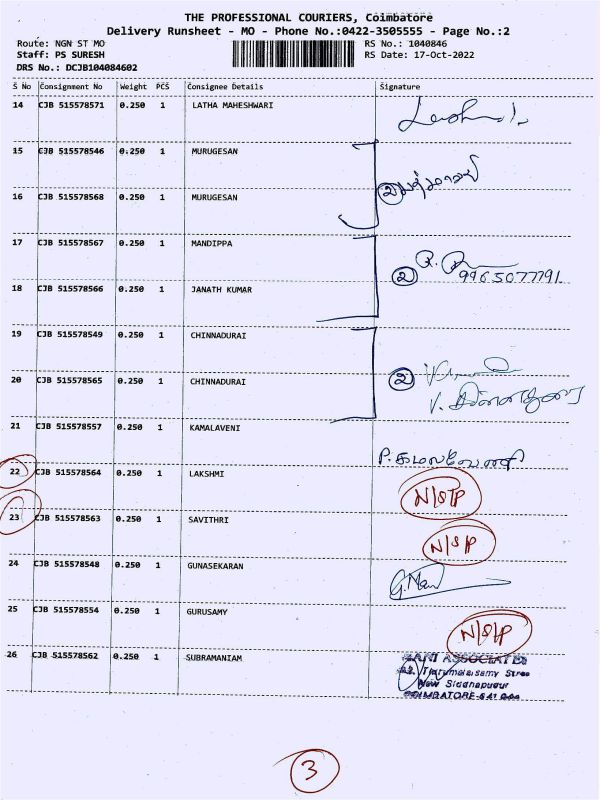 THE PROFESSIONAL COURIERS, Coimbatore
Delivery Runsheet - MO - Phone No.:0422-3505555 - Page No.:2
Route: NGN ST MO RS No.: 1040846
Staff: PS SURESH RS Date: 17-Oct-2022
DRS No.: DCJB104084602
S No Consignment No Weight PCS Consignee Details Signature
14 CJB 515578571 0.250 1 LATHA MAHESHWARI
15 CJB 515578546 0.250 1 MURUGESAN
②
16 CJB 515578568 0.250 1 MURUGESAN
17 CJB 515578567 0.250 1 MANDIPPA
② 9965077791
18 CJB 515578566 0.250 1 JANATH KUMAR
19 CJB 515578549 0.250 1 CHINNADURAI
②
20 CJB 515578565 0.250 1 CHINNADURAI
21 CJB 515578557 0.250 1 KAMALAVENI
P. கமலவேணி
22 CJB 515578564 0.250 1 LAKSHMI
N/S/P
23 CJB 515578563 0.250 1 SAVITHRI
N/S/P
24 CJB 515578548 0.250 1 GUNASEKARAN
25 CJB 515578554 0.250 1 GURUSAMY
N/S/P
26 CJB 515578562 0.250 1 SUBRAMANIAM
ASSOCIATES
Tirumalaisamy Stree
New Siddhapudur
COIMBATORE
3